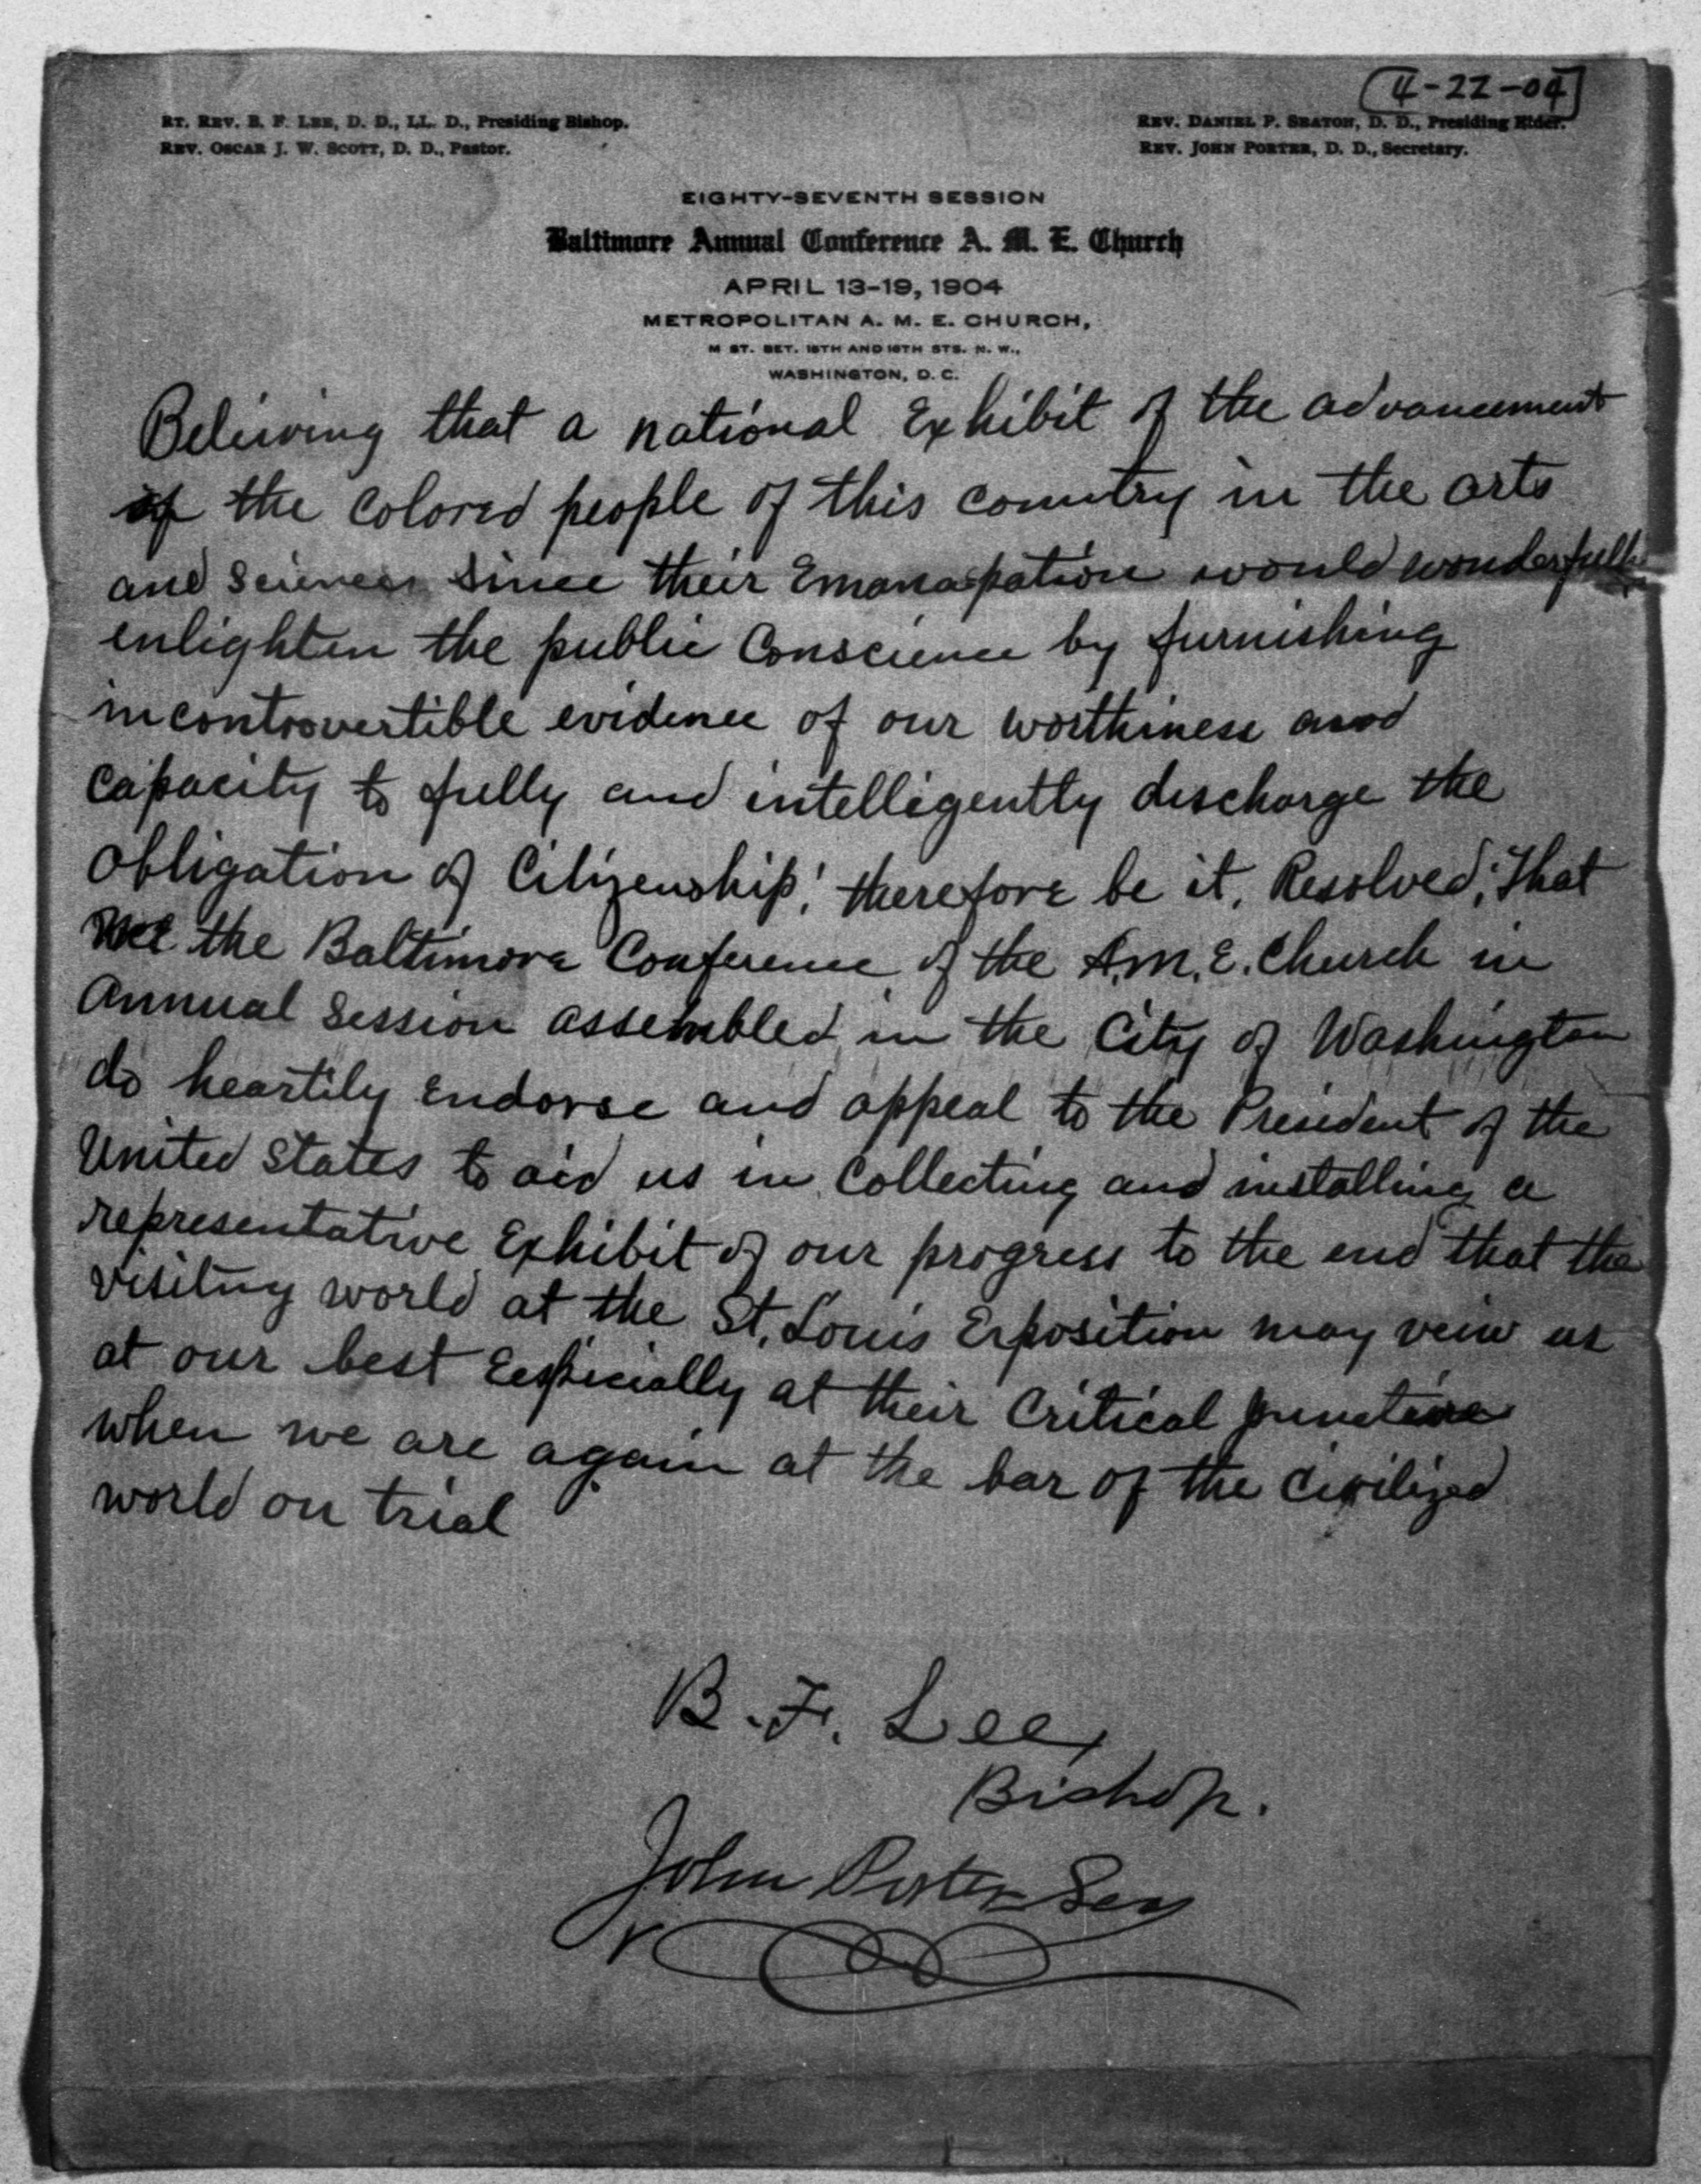 4-22-04
RT. REV. B. F. LEE, D. D., LL. D., Presiding Bishop.
REV. OSCAR J. W. SCOTT, D. D., Pastor.
REV. DANIEL P. SEATON, D. D., Presiding Elder.
REV. JOHN PORTER, D. D., Secretary.
EIGHTY-SEVENTH SESSION
Baltimore Annual Conference A. M. E. Church
APRIL 13-19, 1904
METROPOLITAN A. M. E. CHURCH,
M ST. BET. 15TH AND 16TH STS. N. W.,
WASHINGTON, D. C.
Beleiving that a national Exhibit of the advancement
of the Colored people of this country in the arts
and Sciences since their Emanapation would wonderfully
enlighten the public Conscience by furnishing
incontrovertible evidence of our worthiness and
capacity to fully and intelligently discharge the
obligation of Citizenship; therefore be it, Resolved; That
we the Baltimore Conference of the A.M.E. Church in
Annual Session assembled in the City of Washington
do heartily Endorse and appeal to the President of the
United States to aid us in Collecting and installing a
representative Exhibit of our progress to the end that the
visiting world at the St. Louis Exposition may veiw us
at our best Eespicially at their Critical juncture
when we are again at the bar of the Civilized
world on trial
B. F. Lee,
Bishop.
John Porter Secy